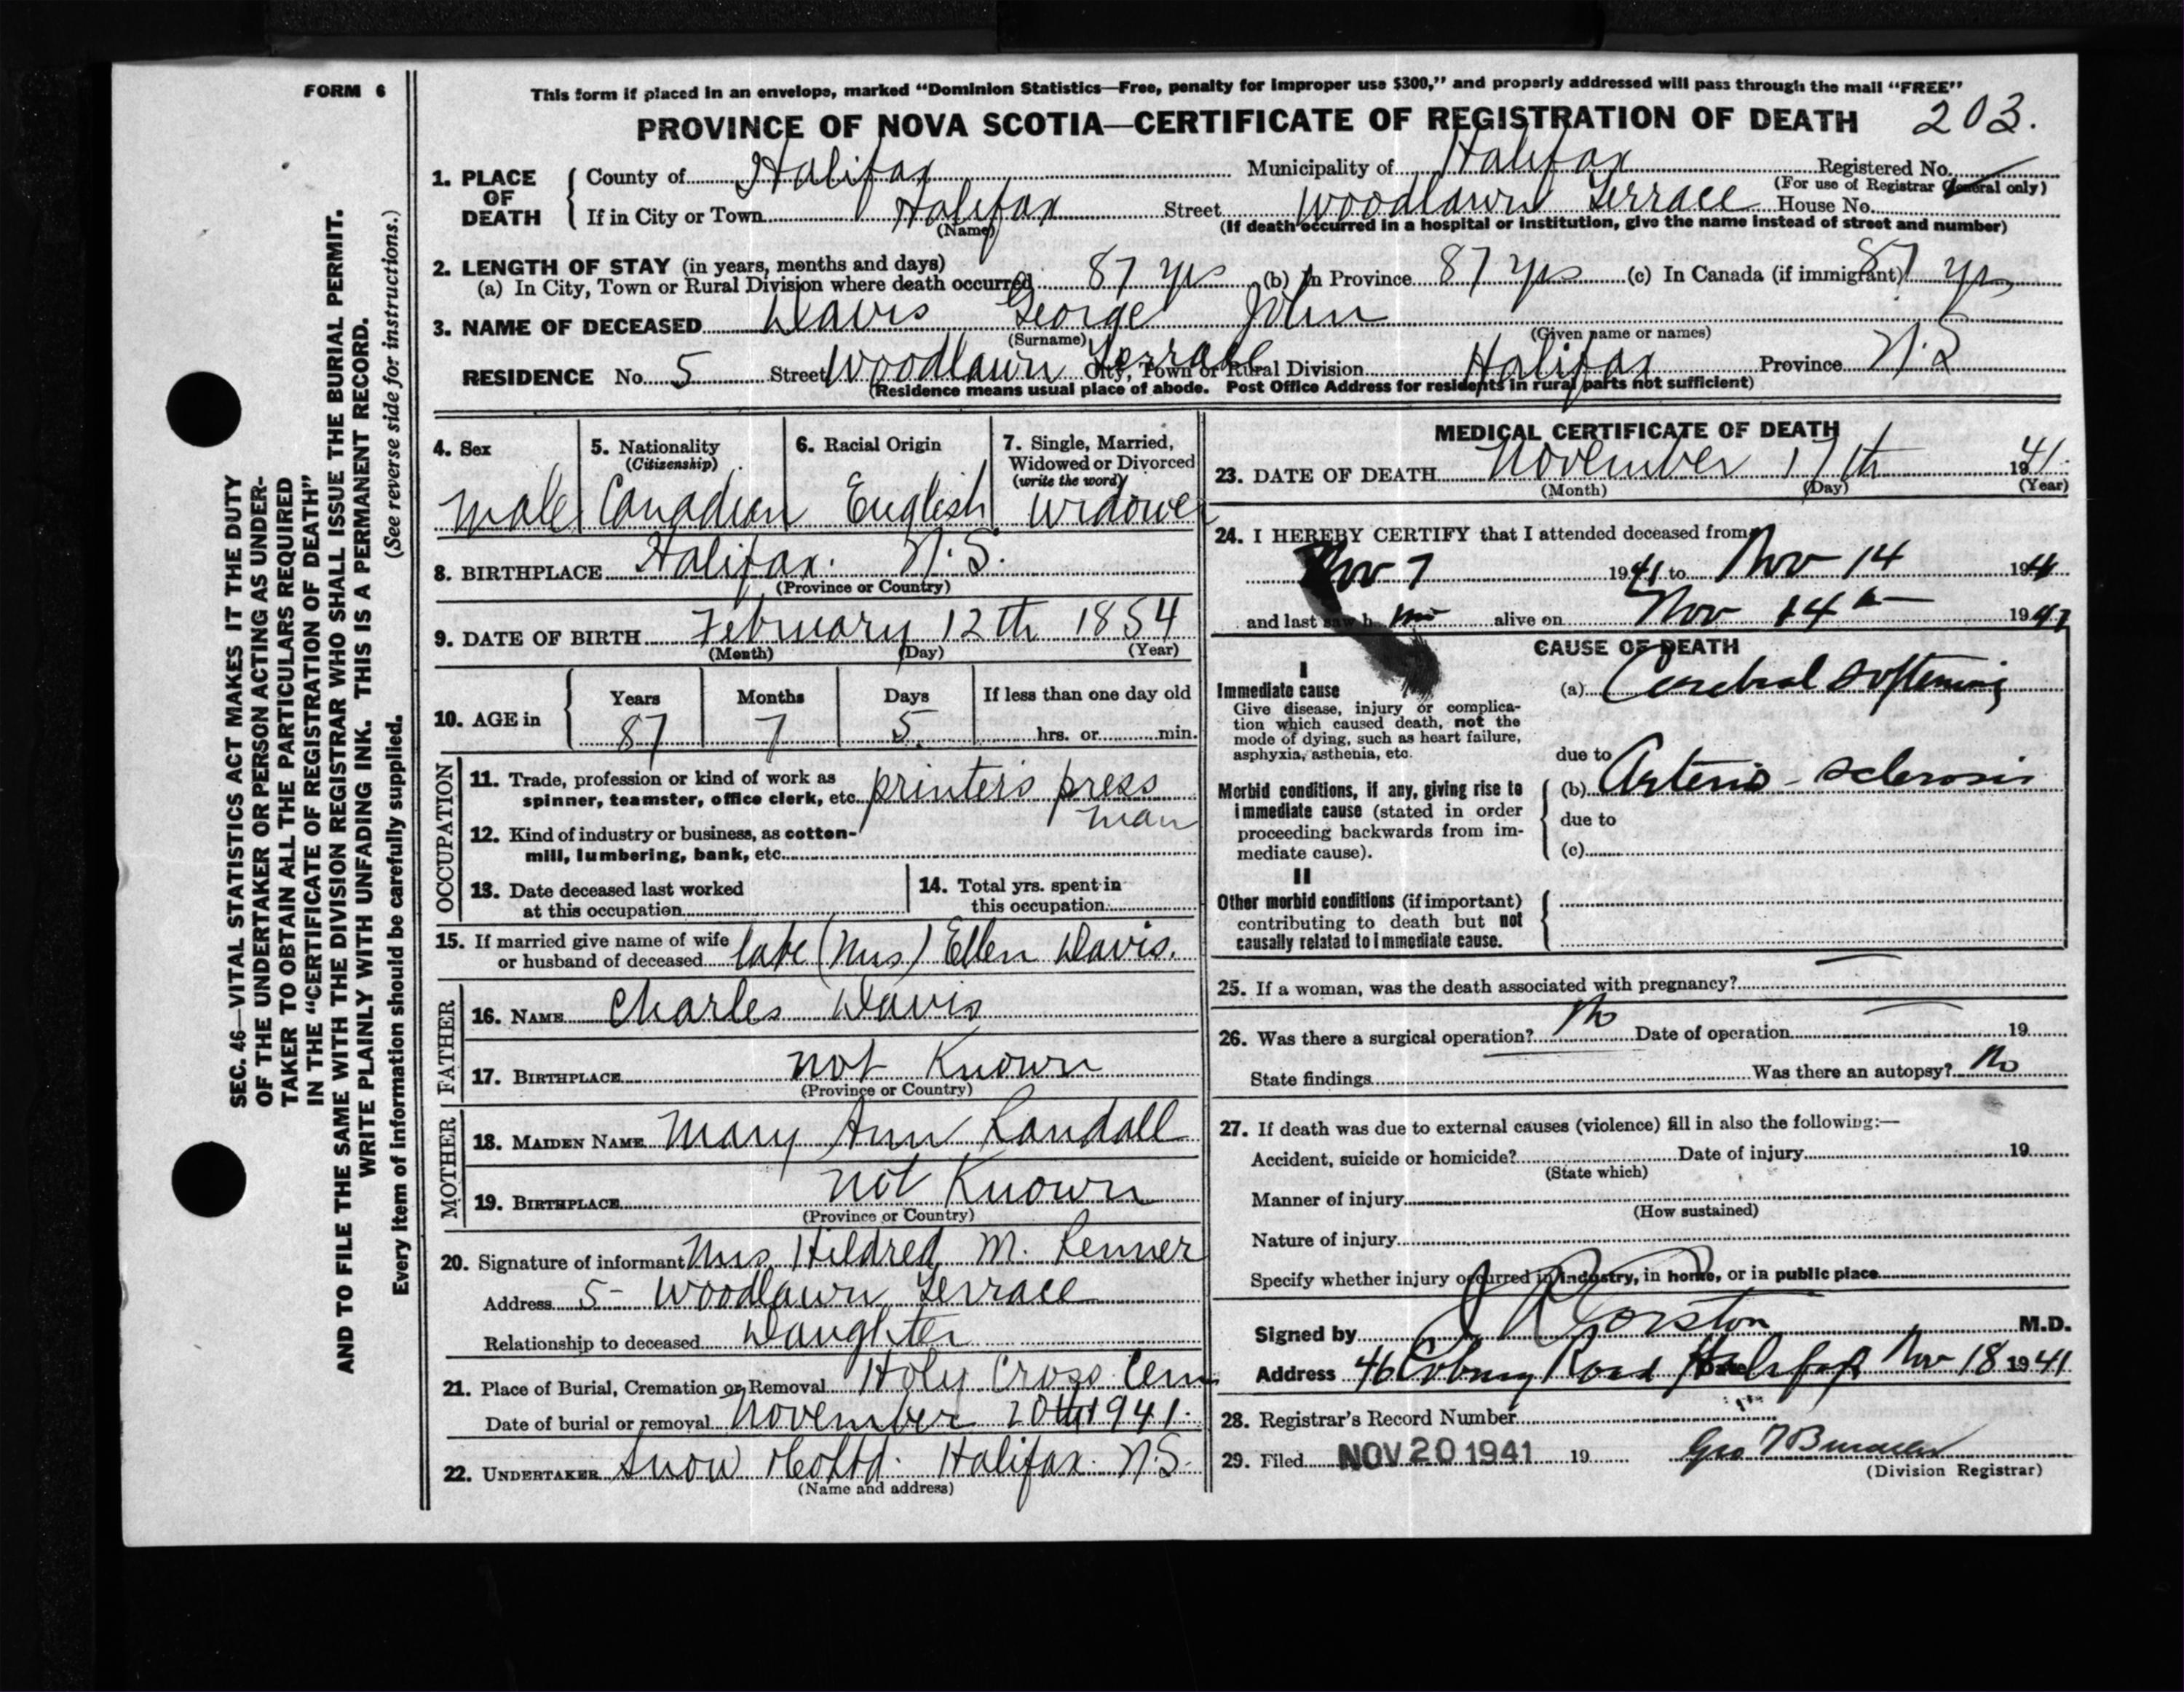 FORM 6
This form if placed in an envelope, marked "Dominion Statistics—Free, penalty for improper use $300," and properly addressed will pass through the mail "FREE"
PROVINCE OF NOVA SCOTIA—CERTIFICATE OF REGISTRATION OF DEATH 203.
SEC. 46—VITAL STATISTICS ACT MAKES IT THE DUTY
OF THE UNDERTAKER OR PERSON ACTING AS UNDER-
TAKER TO OBTAIN ALL THE PARTICULARS REQUIRED
IN THE "CERTIFICATE OF REGISTRATION OF DEATH"
AND TO FILE THE SAME WITH THE DIVISION REGISTRAR WHO SHALL ISSUE THE BURIAL PERMIT.
WRITE PLAINLY WITH UNFADING INK. THIS IS A PERMANENT RECORD.
Every item of information should be carefully supplied. (See reverse side for instructions.)
1. PLACE OF DEATH
County of Halifax Municipality of Halifax Registered No.
(For use of Registrar General only)
If in City or Town Halifax Street Woodlawn Terrace House No.
(Name) (If death occurred in a hospital or institution, give the name instead of street and number)
2. LENGTH OF STAY (in years, months and days)
(a) In City, Town or Rural Division where death occurred 87 yrs (b) In Province 87 yrs (c) In Canada (if immigrant) 87 yrs
3. NAME OF DECEASED Davis George John
(Surname) (Given name or names)
RESIDENCE No. 5 Street Woodlawn Terrace City, Town or Rural Division Halifax Province N.S
(Residence means usual place of abode. Post Office Address for residents in rural parts not sufficient)
4. Sex
male
5. Nationality
(Citizenship)
Canadian
6. Racial Origin
English
7. Single, Married,
Widowed or Divorced
(write the word)
Widower
8. BIRTHPLACE Halifax. N.S.
(Province or Country)
9. DATE OF BIRTH February 12th 1854
(Month) (Day) (Year)
10. AGE in
Years Months Days If less than one day old
87 7 5 hrs. or min.
OCCUPATION
11. Trade, profession or kind of work as
spinner, teamster, office clerk, etc. printers press
man
12. Kind of industry or business, as cotton-
mill, lumbering, bank, etc.
13. Date deceased last worked
at this occupation
14. Total yrs. spent in
this occupation
15. If married give name of wife
or husband of deceased late (Mrs) Ellen Davis.
FATHER
16. NAME Charles Davis
17. BIRTHPLACE not Known
(Province or Country)
MOTHER
18. MAIDEN NAME Mary Ann Randall
19. BIRTHPLACE not Known
(Province or Country)
20. Signature of informant Mrs Hildred M. Renner
Address 5- Woodlawn Terrace
Relationship to deceased Daughter
21. Place of Burial, Cremation or Removal Holy Cross Cem
Date of burial or removal November 20th 1941.
22. UNDERTAKER Snow & Co Ltd. Halifax. N.S.
(Name and address)
MEDICAL CERTIFICATE OF DEATH
23. DATE OF DEATH November 17th 1941.
(Month) (Day) (Year)
24. I HEREBY CERTIFY that I attended deceased from
Nov 7 1941 to Nov 14 1941
and last saw him alive on Nov 14th 1941
CAUSE OF DEATH
I
Immediate cause
Give disease, injury or complica-
tion which caused death, not the
mode of dying, such as heart failure,
asphyxia, asthenia, etc.
(a) Cerebral softening
due to
Morbid conditions, if any, giving rise to
immediate cause (stated in order
proceeding backwards from im-
mediate cause).
(b) Arterio-sclerosis
due to
(c)
II
Other morbid conditions (if important)
contributing to death but not
causally related to immediate cause.
25. If a woman, was the death associated with pregnancy? —
26. Was there a surgical operation? No Date of operation — 19
State findings Was there an autopsy? No
27. If death was due to external causes (violence) fill in also the following:—
Accident, suicide or homicide? Date of injury 19
(State which)
Manner of injury
(How sustained)
Nature of injury
Specify whether injury occurred in industry, in home, or in public place
Signed by J R Corston M.D.
Address 46 Coburg Road Halifax Date Nov 18 1941
28. Registrar's Record Number
29. Filed NOV 20 1941 19
(Division Registrar)